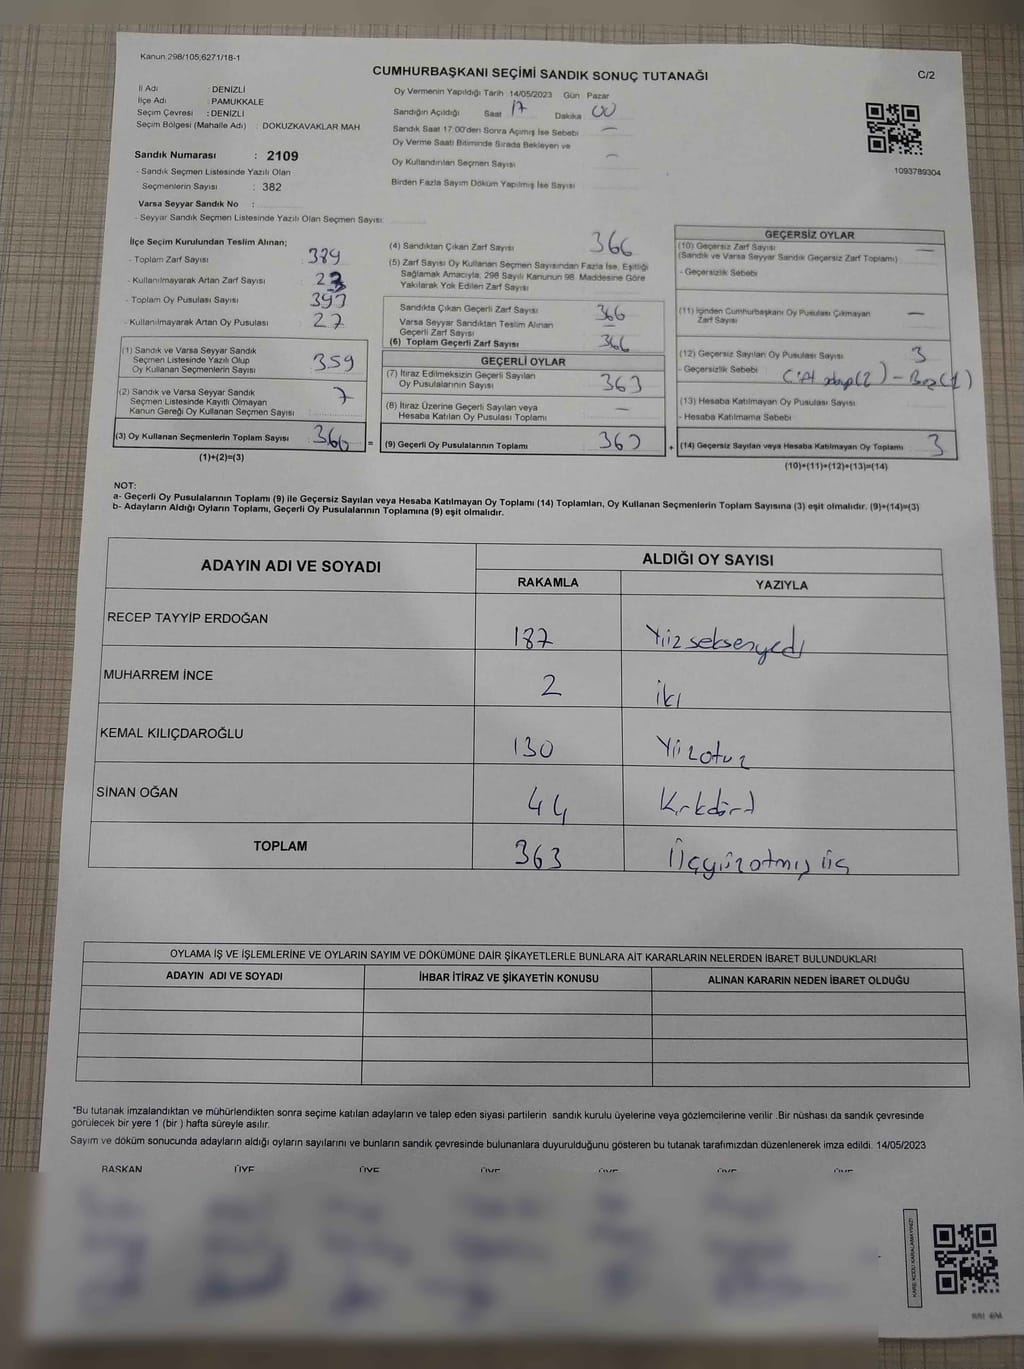 Kanun 298/105,6271/18-1
CUMHURBAŞKANI SEÇİMİ SANDIK SONUÇ TUTANAĞI
C/2
İl Adı : DENİZLİ
İlçe Adı : PAMUKKALE
Seçim Çevresi : DENİZLİ
Seçim Bölgesi (Mahalle Adı) : DOKUZKAVAKLAR MAH
Sandık Numarası : 2109
- Sandık Seçmen Listesinde Yazılı Olan
Seçmenlerin Sayısı : 382
Varsa Seyyar Sandık No :
- Seyyar Sandık Seçmen Listesinde Yazılı Olan Seçmen Sayısı
Oy Vermenin Yapıldığı Tarih : 14/05/2023 Gün : Pazar
Sandığın Açıldığı Saat 17 Dakika 00
Sandık Saat 17:00'den Sonra Açımış İse Sebebi —
Oy Verme Saati Bitiminde Sırada Bekleyen ve
Oy Kullandırılan Seçmen Sayısı —
Birden Fazla Sayım Döküm Yapılmış İse Sayısı
1093789304
İlçe Seçim Kurulundan Teslim Alınan;
- Toplam Zarf Sayısı : 389
- Kullanılmayarak Artan Zarf Sayısı : 23
- Toplam Oy Pusulası Sayısı : 393
- Kullanılmayarak Artan Oy Pusulası : 27
(1) Sandık ve Varsa Seyyar Sandık
Seçmen Listesinde Yazılı Olup
Oy Kullanan Seçmenlerin Sayısı : 359
(2) Sandık ve Varsa Seyyar Sandık
Seçmen Listesinde Kayıtlı Olmayan
Kanun Gereği Oy Kullanan Seçmen Sayısı : 7
(3) Oy Kullanan Seçmenlerin Toplam Sayısı : 366 =
(1)+(2)=(3)
(4) Sandıktan Çıkan Zarf Sayısı 366
(5) Zarf Sayısı Oy Kullanan Seçmen Sayısından Fazla İse, Eşitliği
Sağlamak Amacıyla, 298 Sayılı Kanunun 98. Maddesine Göre
Yakılarak Yok Edilen Zarf Sayısı
Sandıkta Çıkan Geçerli Zarf Sayısı 366
Varsa Seyyar Sandıktan Teslim Alınan
Geçerli Zarf Sayısı —
(6) Toplam Geçerli Zarf Sayısı 366
GEÇERLİ OYLAR
(7) İtiraz Edilmeksizin Geçerli Sayılan
Oy Pusulalarının Sayısı 363
(8) İtiraz Üzerine Geçerli Sayılan veya
Hesaba Katılan Oy Pusulası Toplamı —
(9) Geçerli Oy Pusulalarının Toplamı 363 +
GEÇERSİZ OYLAR
(10) Geçersiz Zarf Sayısı —
(Sandık ve Varsa Seyyar Sandık Geçersiz Zarf Toplamı)
- Geçersizlik Sebebi
(11) İçinden Cumhurbaşkanı Oy Pusulası Çıkmayan
Zarf Sayısı —
(12) Geçersiz Sayılan Oy Pusulası Sayısı 3
- Geçersizlik Sebebi (2) - Boş (1)
(13) Hesaba Katılmayan Oy Pusulası Sayısı
- Hesaba Katılmama Sebebi
(14) Geçersiz Sayılan veya Hesaba Katılmayan Oy Toplamı 3
(10)+(11)+(12)+(13)=(14)
NOT:
a- Geçerli Oy Pusulalarının Toplamı (9) ile Geçersiz Sayılan veya Hesaba Katılmayan Oy Toplamı (14) Toplamları, Oy Kullanan Seçmenlerin Toplam Sayısına (3) eşit olmalıdır. (9)+(14)=(3)
b- Adayların Aldığı Oyların Toplamı, Geçerli Oy Pusulalarının Toplamına (9) eşit olmalıdır.
ADAYIN ADI VE SOYADI
ALDIĞI OY SAYISI
RAKAMLA YAZIYLA
RECEP TAYYİP ERDOĞAN 187 Yüzseksenyedi
MUHARREM İNCE 2 iki
KEMAL KILIÇDAROĞLU 130 Yüzotuz
SİNAN OĞAN 44 Kırkdört
TOPLAM 363 Üçyüzatmış üç
OYLAMA İŞ VE İŞLEMLERİNE VE OYLARIN SAYIM VE DÖKÜMÜNE DAİR ŞİKAYETLERLE BUNLARA AİT KARARLARIN NELERDEN İBARET BULUNDUKLARI
ADAYIN ADI VE SOYADI İHBAR İTİRAZ VE ŞİKAYETİN KONUSU ALINAN KARARIN NEDEN İBARET OLDUĞU
*Bu tutanak imzalandıktan ve mühürlendikten sonra seçime katılan adayların ve talep eden siyasi partilerin sandık kurulu üyelerine veya gözlemcilerine verilir .Bir nüshası da sandık çevresinde
görülecek bir yere 1 (bir ) hafta süreyle asılır.
Sayım ve döküm sonucunda adayların aldığı oyların sayılarını ve bunların sandık çevresinde bulunanlara duyurulduğunu gösteren bu tutanak tarafımızdan düzenlenerek imza edildi. 14/05/2023
BAŞKAN ÜYE ÜYE ÜYE ÜYE ÜYE ÜYE
KARE KODU KARALAMAYINIZ!